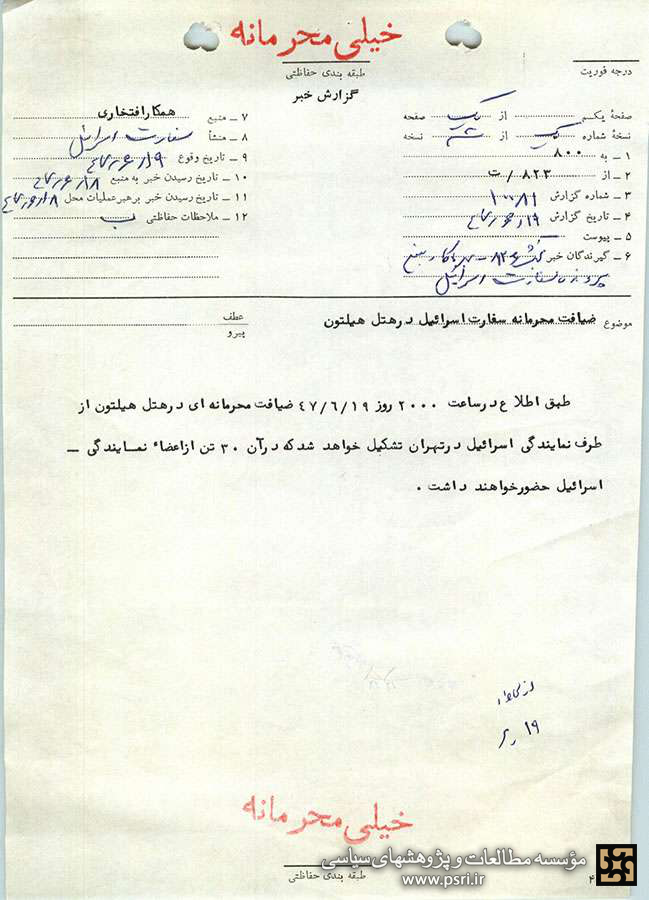 خیلی محرمانه
طبقه بندی حفاظتی
درجه فوریت
گزارش خبر
صفحهٔ یکم از یک صفحه
نسخهٔ شماره یک از شش نسخه
۱ ـ به ۸۰۰
۲ ـ از ۸۲۳ / ت
۳ ـ شماره گزارش
۴ ـ تاریخ گزارش
۵ ـ پیوست
۶ ـ گیرندگان خبر
سفارت اسرائیل
۷ ـ منبع همکار افتخاری
۸ ـ منشأ سفارت اسرائیل
۹ ـ تاریخ وقوع
۱۰ ـ تاریخ رسیدن خبر به منبع
۱۱ ـ تاریخ رسیدن خبر برهبر عملیات محل
۱۲ ـ ملاحظات حفاظتی
موضوع ضیافت محرمانه سفارت اسرائیل درهتل هیلتون
عطف
پیرو
طبق اطلاع درساعت ۲۰۰۰ روز ۴۷/۶/۱۹ ضیافت محرمانه ای درهتل هیلتون از
طرف نمایندگی اسرائیل درتهران تشکیل خواهد شد که درآن ۳۰ تن ازاعضاء نمایندگی ـ
اسرائیل حضورخواهند داشت .
خیلی محرمانه
طبقه بندی حفاظتی
مؤسسه مطالعات و پژوهشهای سیاسی
www.psri.ir